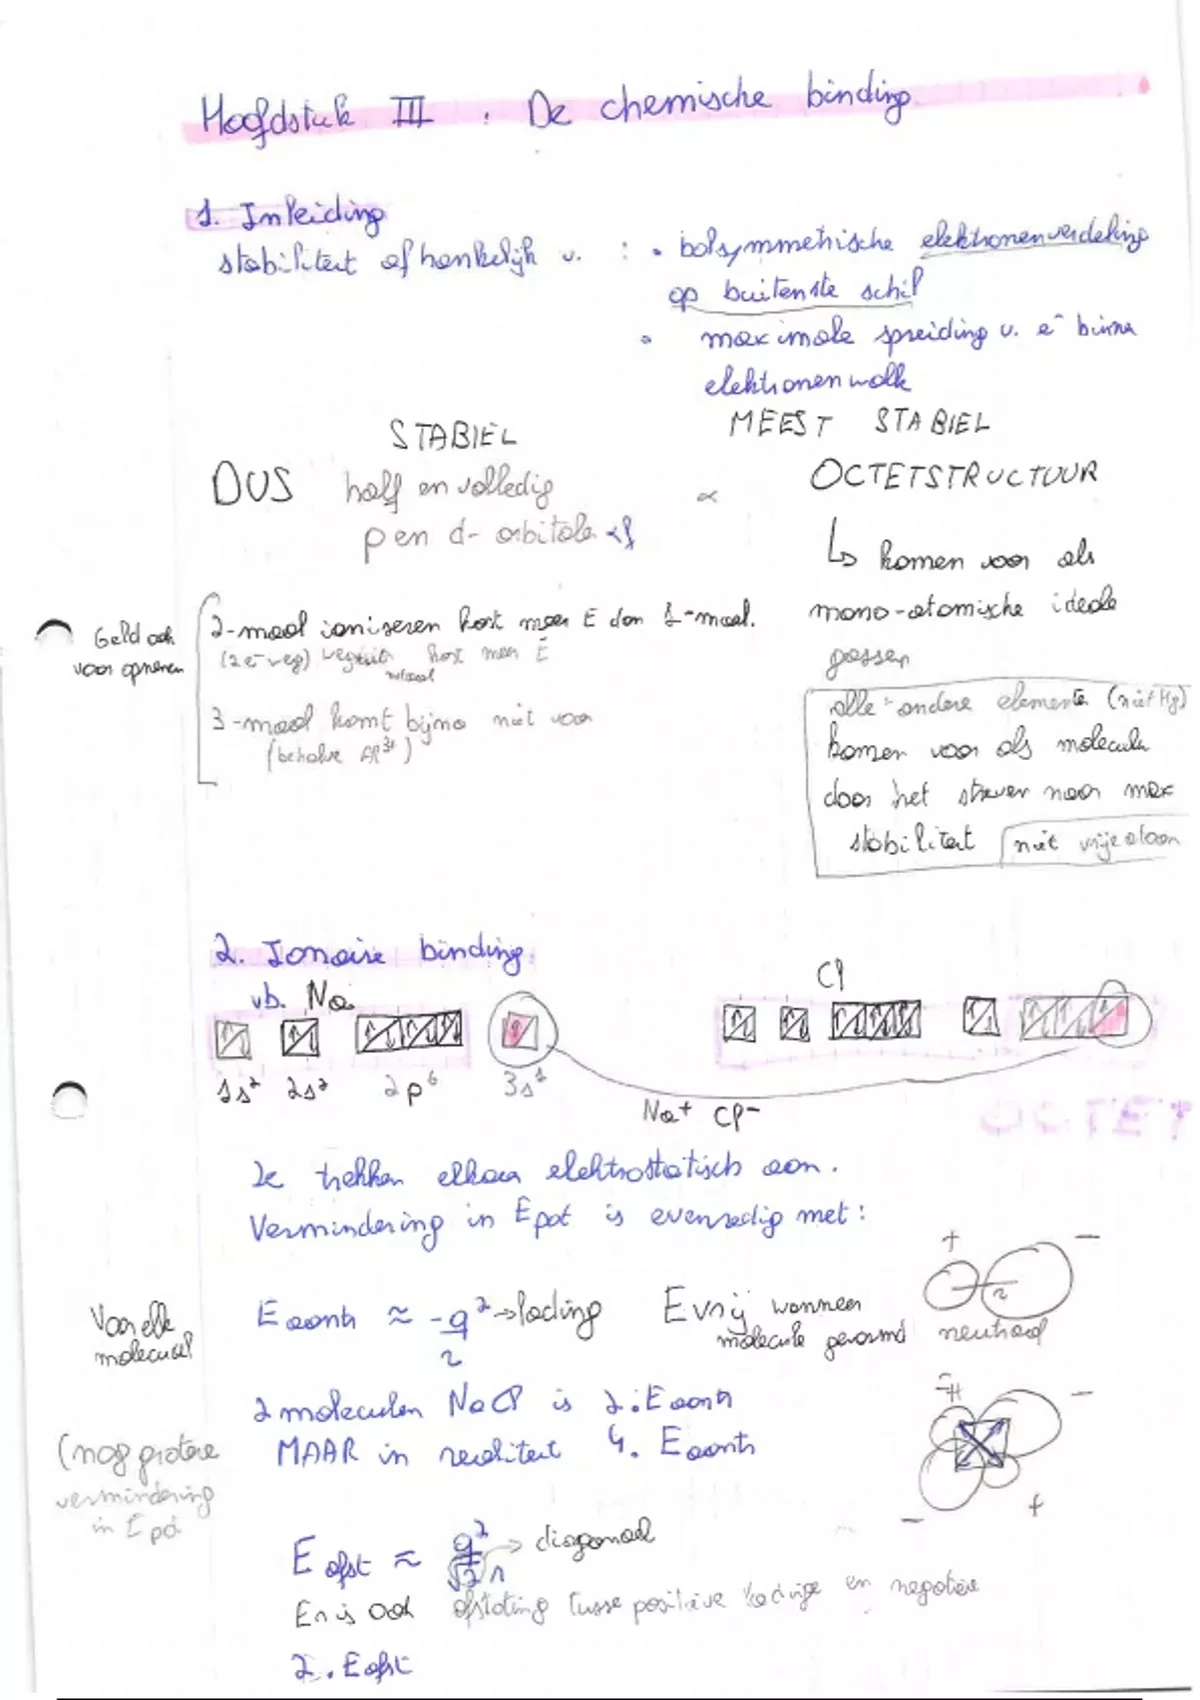 Hoofdstuk III : De chemische binding
1. Inleiding
stabiliteit afhankelijk v. : • bolsymmetrische elektronenverdeling
op buitenste schil
• maximale spreiding v. e⁻ binnen
elektronenwolk
STABIEL
MEEST STABIEL
DUS half en volledig
p en d-orbitale
OCTETSTRUCTUUR
↳ komen voor als
mono-atomische ideale
gassen
Geld ook
voor opnemen
2-maal ioniseren kost meer E dan 1-maal.
(2e⁻ weg) kost meer E
3-maal komt bijna niet voor
(behalve Al³⁺)
alle andere elementen (niet Hg)
komen voor als molecule
door het streven naar max
stabiliteit niet vrije atoom
2. Ionaire binding
vb. Na
Cl
1s² 2s² 2p⁶ 3s¹
Na⁺ Cl⁻
OCTET
Ze trekken elkaar elektrostatisch aan.
Vermindering in Epot is evenredig met:
+ −
Voor elk
molecuul
E aantr ≈ -q²/r → lading
E vrij wanneer
molecule gevormd
r
neutraal
2 moleculen NaCl is 2.E aantr
MAAR in realiteit 4. E aantr
(nog grotere
vermindering
in Epot
+ −
− +
E afst ≈ q²/√2 r → diagonaal
En is ook afstoting tusse positieve ladinge en negatieve
2. E afst